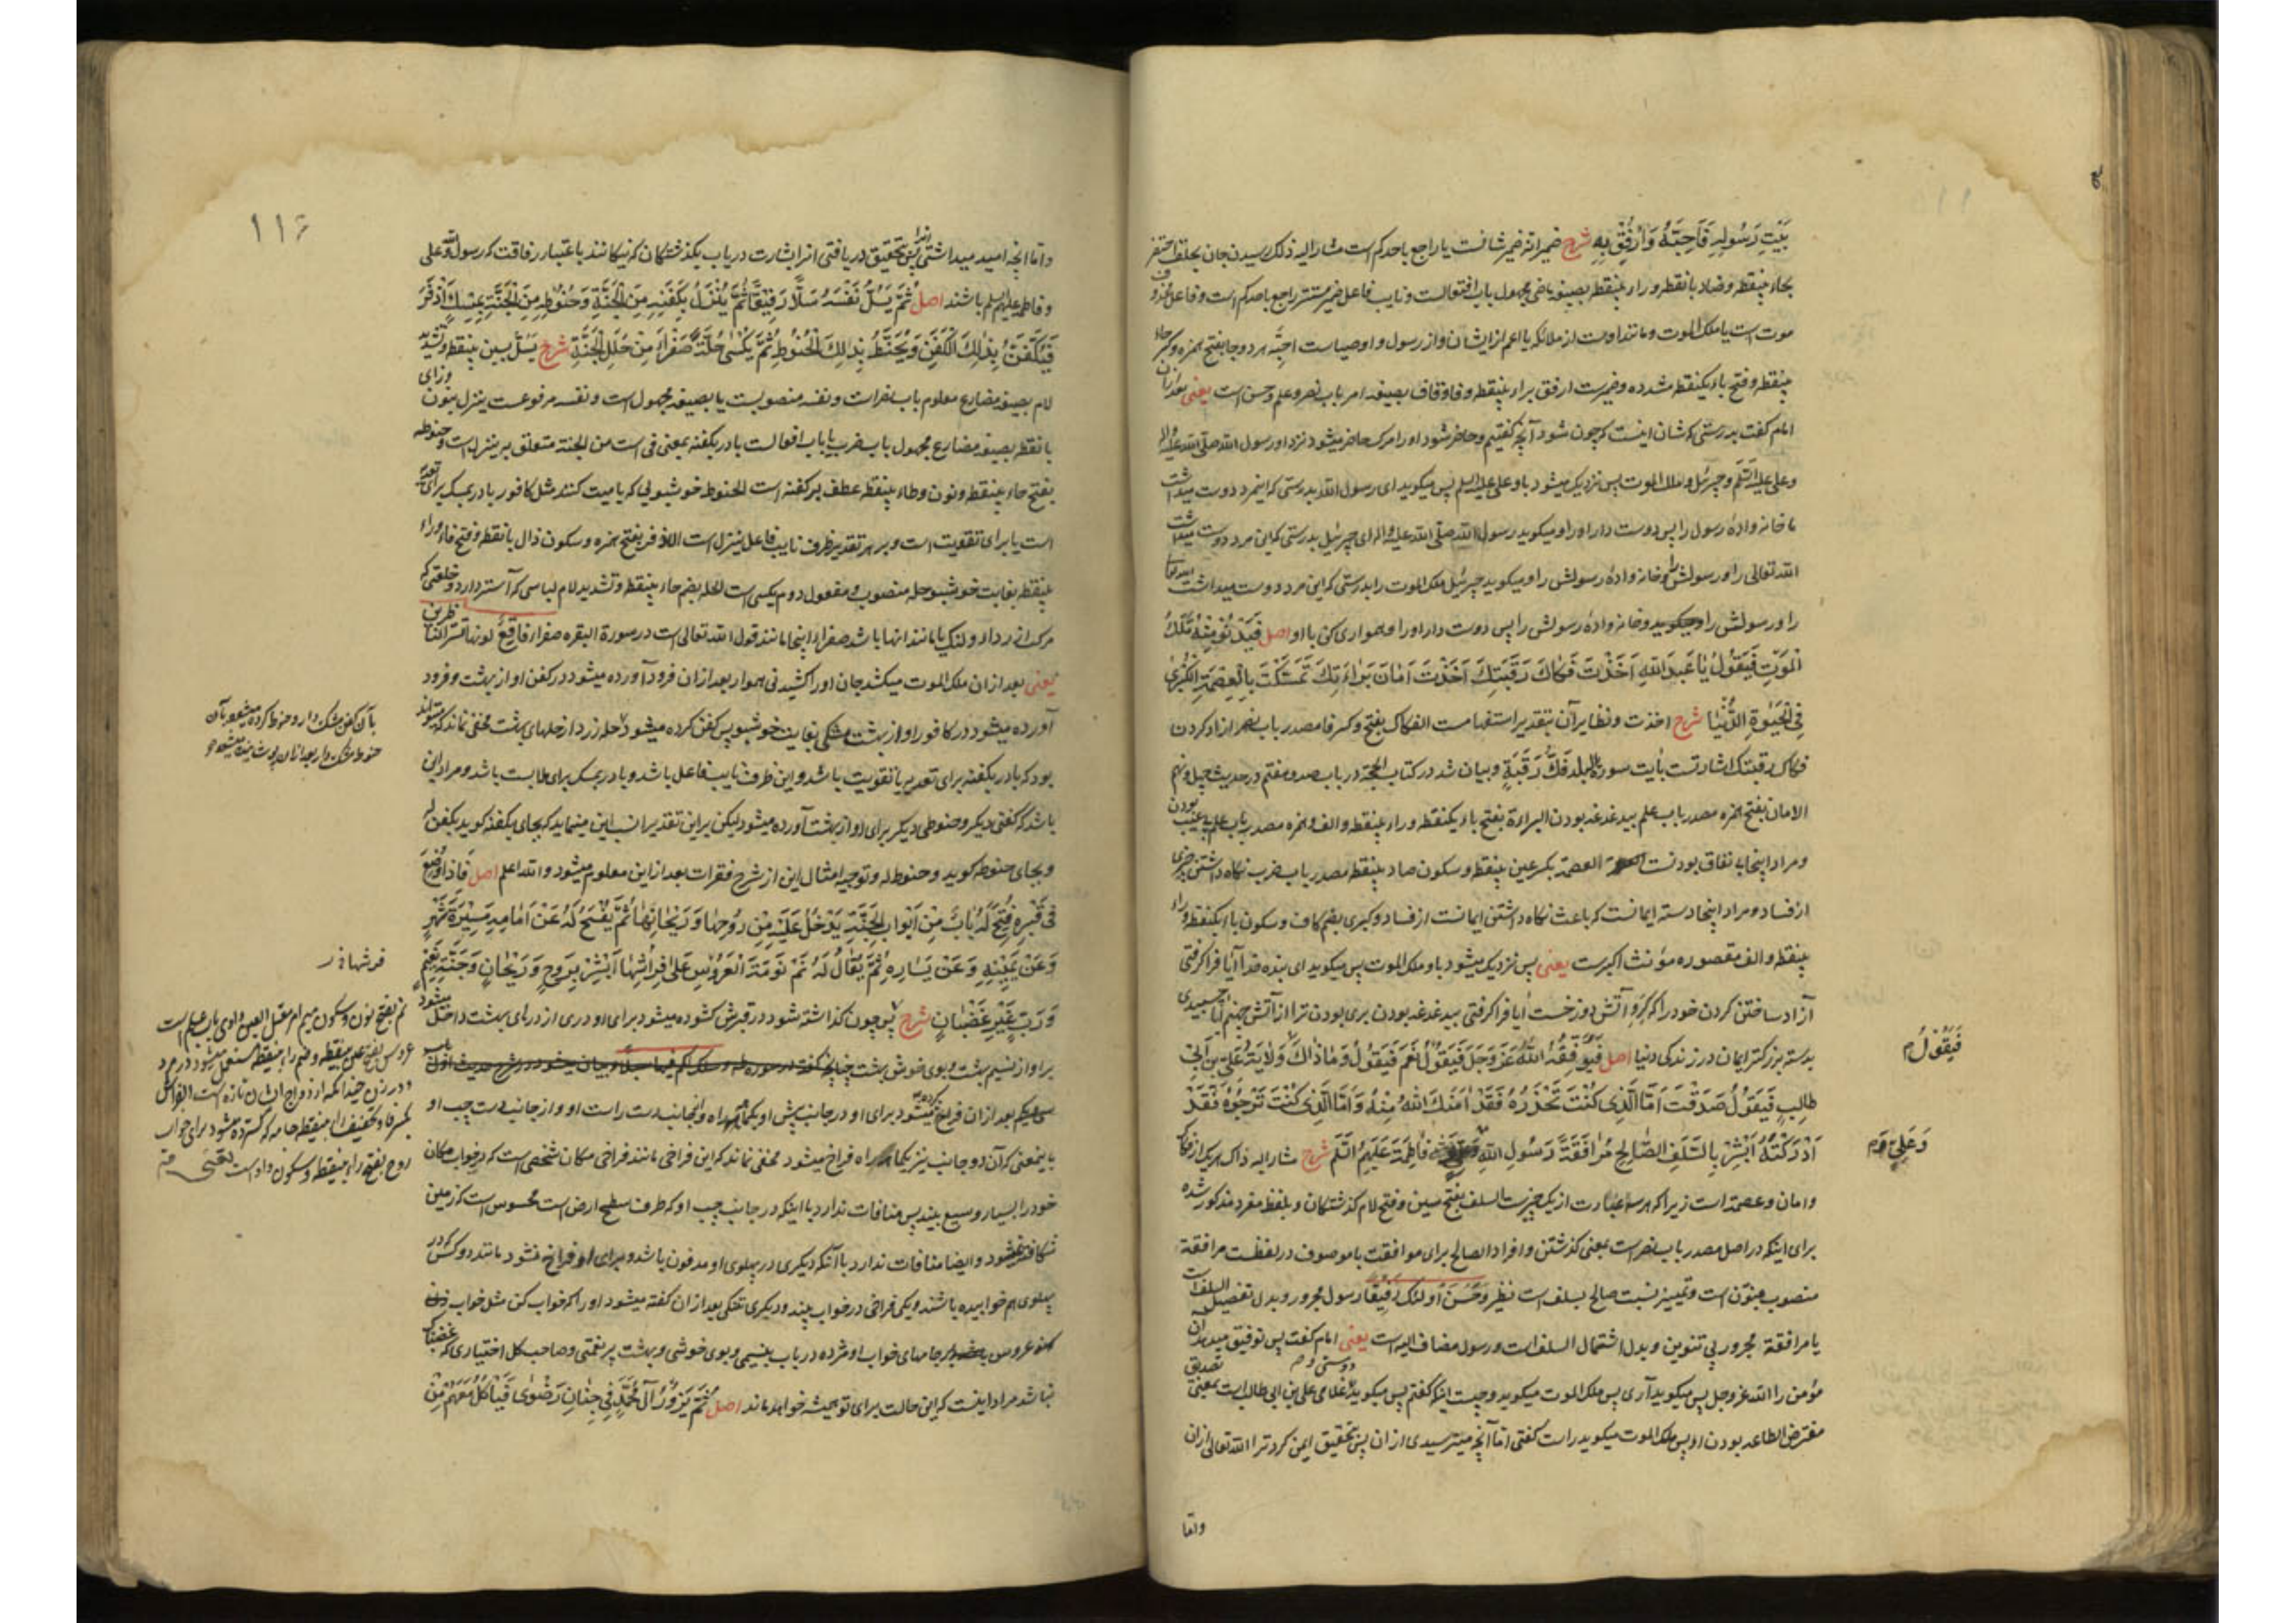 بَيْتِ رَسُولِهِ فَاَحِبَّهُ وَاَرْفِقْ بِهِ شرح ضمیر انه ضمیر شانست یا راجع باحدکم است مشار الیه ذلک رسیدن جان بحلق احتضر
بحاء بینقطه وضاد بانقطه وراء بینقطه بصیغه ماضی مجهول باب افتعالست ونایب فاعل ضمیر مستتر راجع باحدکم است وفاعل محذوف
موت است یا ملک الموت ومانند اوست از ملائکه یا اعم از ایشان واز رسول واوصیاست احبّه هر دو جا بفتح همزه وکسر حاء
بینقطه وفتح باء یکنقطه مشدده وضمیرست ارفق براء بینقطه وفا وقاف بصیغه امر باب نصر وعلم وحسن است یعنی بعد از آن
امام گفت بدرستی که شان اینست که چون شود آنچه گفتیم وحاضر شود او را مرک حاضر میشود نزد او رسول الله صلّی الله علیه وآله
وعلی علیه السّلم وجبرئیل وملک الموت پس نزدیک میشود باو علی علیه السلم پس میکوید ای رسول الله بدرستی که اینمرد دوست میداشت
ما خانواده رسول را پس دوست دار او را ومیکوید رسول الله صلّی الله علیه وآله ای جبرئیل بدرستی که این مرد دوست میداشت
الله تعالی را ورسولش را وخانواده رسولش را ومیکوید جبرئیل ملک الموت را بدرستی که این مرد دوست میداشت الله تعالی
را ورسولش را وخانواده رسولش را پس دوست دار او را وهمواری کن با او اصل فَيَدْنُو مِنْهُ مَلَكُ
الْمَوْتِ فَيَقُولُ يَا عَبْدَ اللّٰهِ اَخَذْتَ فَكَاكَ رَقَبَتِكَ اَخَذْتَ اَمَانَ بَرَاءَتِكَ تَمَسَّكْتَ بِالْعِصْمَةِ الْكُبْرٰى
فِي الْحَيٰوةِ الدُّنْيَا شرح اخذت ونظایر آن بتقدیر استفهامست الفکاک بفتح وکسر فا مصدر باب نصر ازاد کردن
فکاک رقبتک اشارتست بآیت سورة البلد فَكُّ رَقَبَةٍ وبیان شد در کتاب الحجّة در باب صد وهفتم در حدیث چهل ونهم
الامان بفتح همزه مصدر باب علم بیدغدغه بودن البراءة بفتح باء یکنقطه وراء بینقطه والف وهمزه مصدر باب علم بیعیب بودن
ومراد اینجا بی نفاق بودنست العصمة بکسر عین بینقطه وسکون صاد بینقطه مصدر باب ضرب نکاه داشتن چیزی
از فساد ومراد اینجا دسته ایمانست که باعث نکاه داشتن ایمانست از فساد وکبری بضم کاف وسکون باء یکنقطه وراء
بینقطه والف مقصوره مؤنث اکبرست یعنی پس نزدیک میشود باو ملک الموت پس میکوید ای بنده خدا آیا فراکرفتی
آزاد ساختن کردن خود را که کرو آتش دوزخست آیا فراکرفتی بیدغدغه بودن بری بودن ترا از آتش جهنم آیا چسبیدی
بدسته بزرکتر ایمان در زندکی دنیا اصل فَيُوَفِّقُهُ اللّٰهُ عَزَّ وَجَلَّ فَيَقُولُ نَعَمْ فَيَقُولُ وَمَا ذَاكَ وَلَايَةُ عَلِيِّ بْنِ اَبِي
فَيَقُولُ م
طَالِبٍ فَيَقُولُ صَدَقْتَ اَمَّا الَّذِي كُنْتَ تَحْذَرُهُ فَقَدْ اٰمَنَكَ اللّٰهُ مِنْهُ وَاَمَّا الَّذِي كُنْتَ تَرْجُوهُ فَقَدْ
اَدْرَكْتَهُ اَبْشِرْ بِالسَّلَفِ الصَّالِحِ مُرَافَقَةَ رَسُولِ اللّٰهِ فَاطِمَةَ عَلَيْهِمُ السَّلَمُ شرح مشار الیه ذاک هر یک از فکاک
وَعَلِيٍّ وَم
وامان وعصمة است زیرا که هر سه عبارت از یک چیزست السلف بفتح سین وفتح لام کذشتکان وبلفظ مفرد مذکور شده
برای اینکه در اصل مصدر باب نصر است بمعنی کذشتن وافراد الصالح برای موافقت با موصوف در لفظست مرافقة
منصوب منوّن است وتمییز نسبت صالح بسلف است نظیر وَحَسُنَ اُولٰئِكَ رَفِيقًا رسول مجرور وبدل تفصیل السلف است
یا مرافقة مجرور بی تنوین وبدل اشتمال السلف است ورسول مضاف الیه است یعنی امام گفت پس توفیق میدهد آن
مؤمن را الله عزوجل پس میکوید آری پس ملک الموت میکوید وچیست اینکه کفتم پس میکوید علی بن ابی طالب است بمعنی تصدیق
مفترض الطاعه بودن او پس ملک الموت میکوید راست کفتی امّا آنچه میترسیدی از ان پس بتحقیق ایمن کرد ترا الله تعالی از ان
وامّا
۱۱۶
وامّا آنچه امید میداشتی پس بتحقیق دریافتی انرا بشارت دریاب بکذشتکان که نیکانند باعتبار رفاقت که رسول الله وعلی
وفاطمه علیهم السلم باشند اصل ثُمَّ يَسُلُّ نَفْسَهُ سَلًّا رَفِيقًا ثُمَّ يُنْزَلُ بِكَفَنِهِ مِنَ الْجَنَّةِ وَحَنُوطِهِ مِنَ الْجَنَّةِ بِمِسْكٍ اَذْفَرَ
فَيُكَفَّنُ بِذٰلِكَ الْكَفَنِ وَيُحَنَّطُ بِذٰلِكَ الْحَنُوطِ ثُمَّ يُكْسٰى حُلَّةً صَفْرَاءَ مِنْ حُلَلِ الْجَنَّةِ شرح یسلّ بسین بینقطه وتشدید
لام بصیغه مضارع معلوم باب نصر است ونفسه منصوبست یا بصیغه مجهول است ونفسه مرفوعست ینزل بنون وزای
بانقطه بصیغه مضارع مجهول باب ضرب یا باب افعالست با در بکفنه بمعنی فی است من الجنة متعلق بر ینزل است وحنوطه
بفتح حاء بینقطه ونون وطاء بینقطه عطف بر کفنه است الحنوط خوشبوئی که با میت کنند مثل کافور با در بمسک برای تعدیه
است یا برای تقویت است وبر هر تقدیر ظرف نایب فاعل ینزل است الاذفر بفتح همزه وسکون ذال بانقطه وفتح فاء وراء
بینقطه بغایت خوشبو حله منصوب ومفعول دوم یکسی است الحله بضم حاء بینقطه وتشدید لام لباسی که آستر دارد وخلعتی که
مرکب از رداء ولنک یا مانند انها باشد صفراء اینجا مانند قول الله تعالی است در سورة البقره صفراء فاقع لونها تسرّ الناظرین
یعنی بعد از ان ملک الموت میکشد جان او را کشیدنی هموار بعد از ان فرود آورده میشود در کفن او از بهشت وفرود
آورده میشود در کافور او از بهشت مشکی بغایت خوشبو پس کفن کرده میشود حله زرد از حلهای بهشت مخفی نماند که میتواند
بآن کفن مشک دار وحنوط کرده میشود بآن
حنوط مشک دار بعد از ان پوشانیده میشود
بود که با در بکفنه برای تعدیه یا تقویت باشد واین ظرف نایب فاعل باشد وبا در بمسک برای ملابست باشد ومراد این
باشد که کفنی دیکر وحنوطی دیکر برای او از بهشت آورده میشود لیکن بر این تقدیر انسب این مینماید که بجای بکفنه کوید بکفن له
وبجای حنوطه کوید وحنوط له وتوجیه امثال این از شرح فقرات بعد از این معلوم میشود والله اعلم اصل فَاِذَا وُضِعَ
فِي قَبْرِهِ فُتِحَ لَهُ بَابٌ مِنْ اَبْوَابِ الْجَنَّةِ يَدْخُلُ عَلَيْهِ مِنْ رَوْحِهَا وَرَيْحَانِهَا ثُمَّ يُفْسَحُ لَهُ عَنْ اَمَامِهِ مَسِيرَةَ شَهْرٍ
وَعَنْ يَمِينِهِ وَعَنْ يَسَارِهِ ثُمَّ يُقَالُ لَهُ نَمْ نَوْمَةَ الْعَرُوسِ عَلٰى فِرَاشِهَا اَبْشِرْ بِرَوْحٍ وَرَيْحَانٍ وَجَنَّةِ نَعِيمٍ
فرشها
وَرَبٍّ غَيْرِ غَضْبَانٍ شرح پس چون کذاشته شود در قبرش کشوده میشود برای او دری از درهای بهشت داخل میشود
نم بفتح نون وسکون میم امر معتل العین واوی باب علم است
عروس بفتح عین بینقطه وضم راء بینقطه مستعمل میشود در مرد
ودر زن چندانکه ازدواج ایشان تازه است الفراش
بکسر فا وتخفیف راء بینقطه جامه که کسترده میشود برای خواب
روح بفتح راء بینقطه وسکون واو است
بر او از نسیم بهشت وبوی خوش بهشت
بعد از ان فراخ کرده میشود برای او در جانب پیش او یکماهه راه واز جانب دست راست او واز جانب دست چپ او
باینمعنی که آن دو جانب نیز یکماهه راه فراخ میشود مخفی نماند که این فراخی مانند فراخی مکان شخصی است که در خواب مکان
خود را بسیار وسیع بیند پس منافات ندارد با اینکه در جانب چپ او که طرف سطح ارض است محسوس است که زمین
شکافته نمیشود وایضا منافات ندارد با آنکه دیکری در پهلوی او مدفون باشد وبرای او فراخ نشود مانند دو کس که در
پهلوی هم خوابیده باشند ویکی فراخی در خواب بیند ودیکری تنکی بعد از ان کفته میشود او را که خواب کن مثل خواب
عروس بر جامهای خواب او مژده دریاب بنسیمی وبوی خوشی وبهشت پر نعمتی وصاحب کل اختیاری که غضبناک
نباشد مراد اینست که این حالت برای تو همیشه خواهد ماند اصل ثُمَّ يَزُورُ آلَ مُحَمَّدٍ فِي جِنَانِ رَضْوٰى فَيَأْكُلُ مَعَهُمْ مِنْ